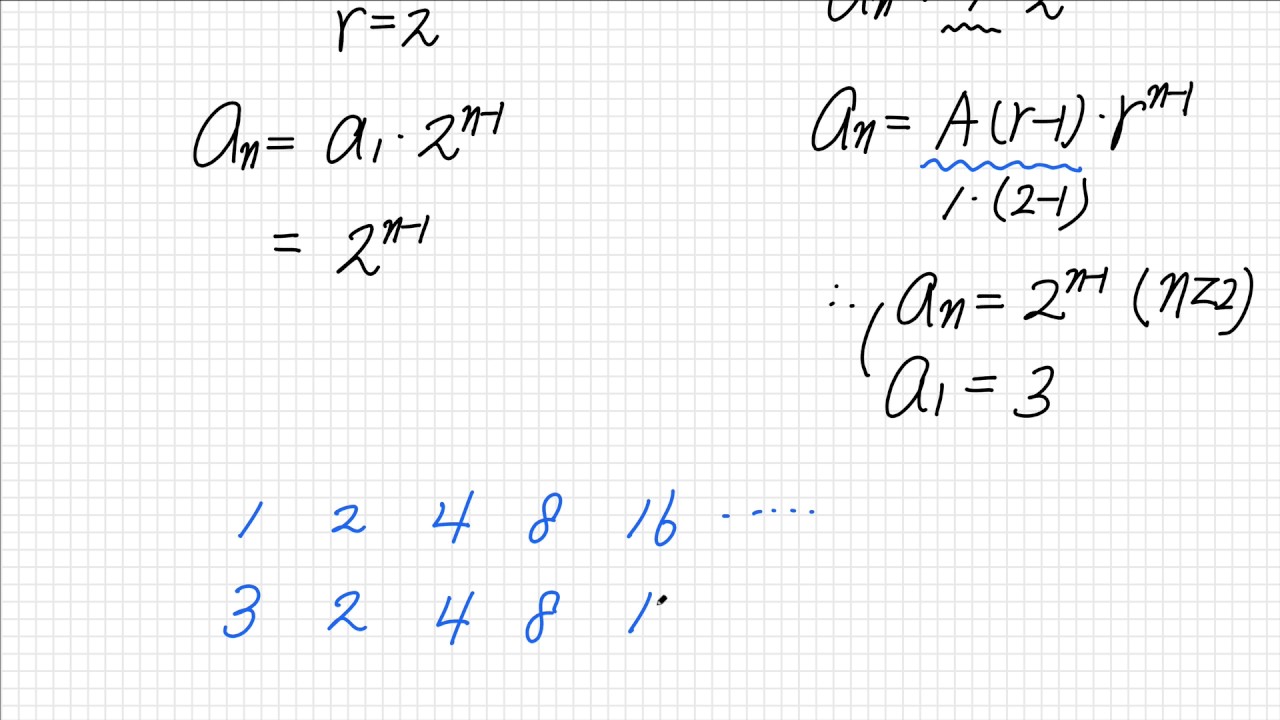 r=2
aₙ = a₁·2ⁿ⁻¹
= 2ⁿ⁻¹
aₙ = A(r-1)·rⁿ⁻¹
1·(2-1)
∴ aₙ = 2ⁿ⁻¹ (n≥2)
a₁ = 3
1 2 4 8 16 ······
3 2 4 8 1